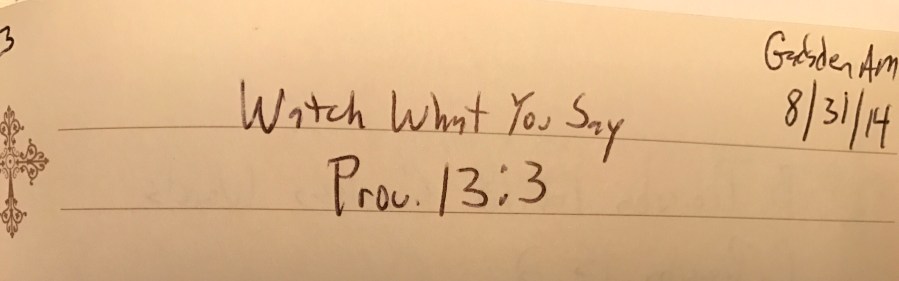 3
Gadsden Am
8/31/14
Watch What You Say
Prov. 13:3